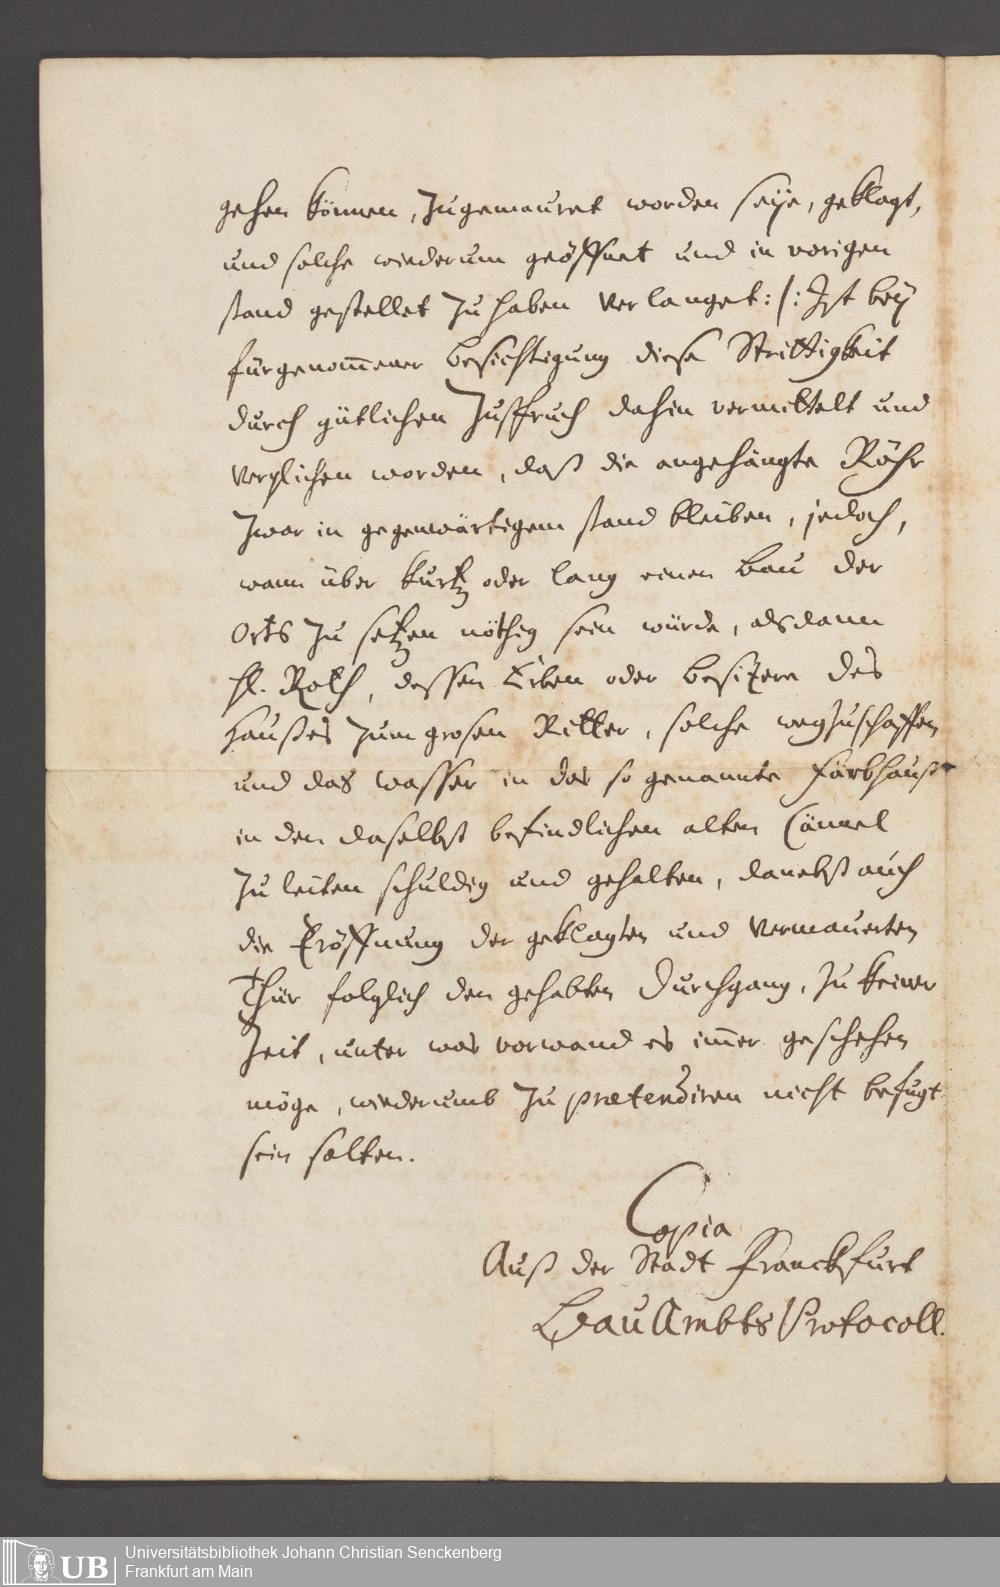 gehen können, zugemauret worden seÿe, geklagt,
und solche wiederum geöffnet und in vorigen
stand gestellet zu haben verlanget :/: Ist beÿ
fürgenom̄ener besichtigung diese Strittigkeit
durch gütlichen Zuspruch dahin vermittelt und
verglichen worden, daß die angehängte Röhr
zwar in gegenwärtigem stand bleiben, jedoch,
wann über kurtz oder lang einen bau der
Orts zu setzen nöthig sein würde, alsdann
H. Roth, dessen Erben oder besitzere des
Haußes zum grosen Ritter, solche wegzuschaffen
und das wasser in das so genannte färbhauß
in den daselbst befindlichen alten Cännel
zu leiten schuldig und gehalten, danebst auch
die Eröffnung der geklagten und vermauerten
Thür folglich den gehabten Durchgang, zu keiner
Zeit, unter was vorwand es im̄er geschehen
möge, wiederumb zu prætendiren nicht befugt
sein solten.
Copia
Auß der Stadt Franckfurt
Bau Ambts Protocoll.
UB
Universitätsbibliothek Johann Christian Senckenberg
Frankfurt am Main